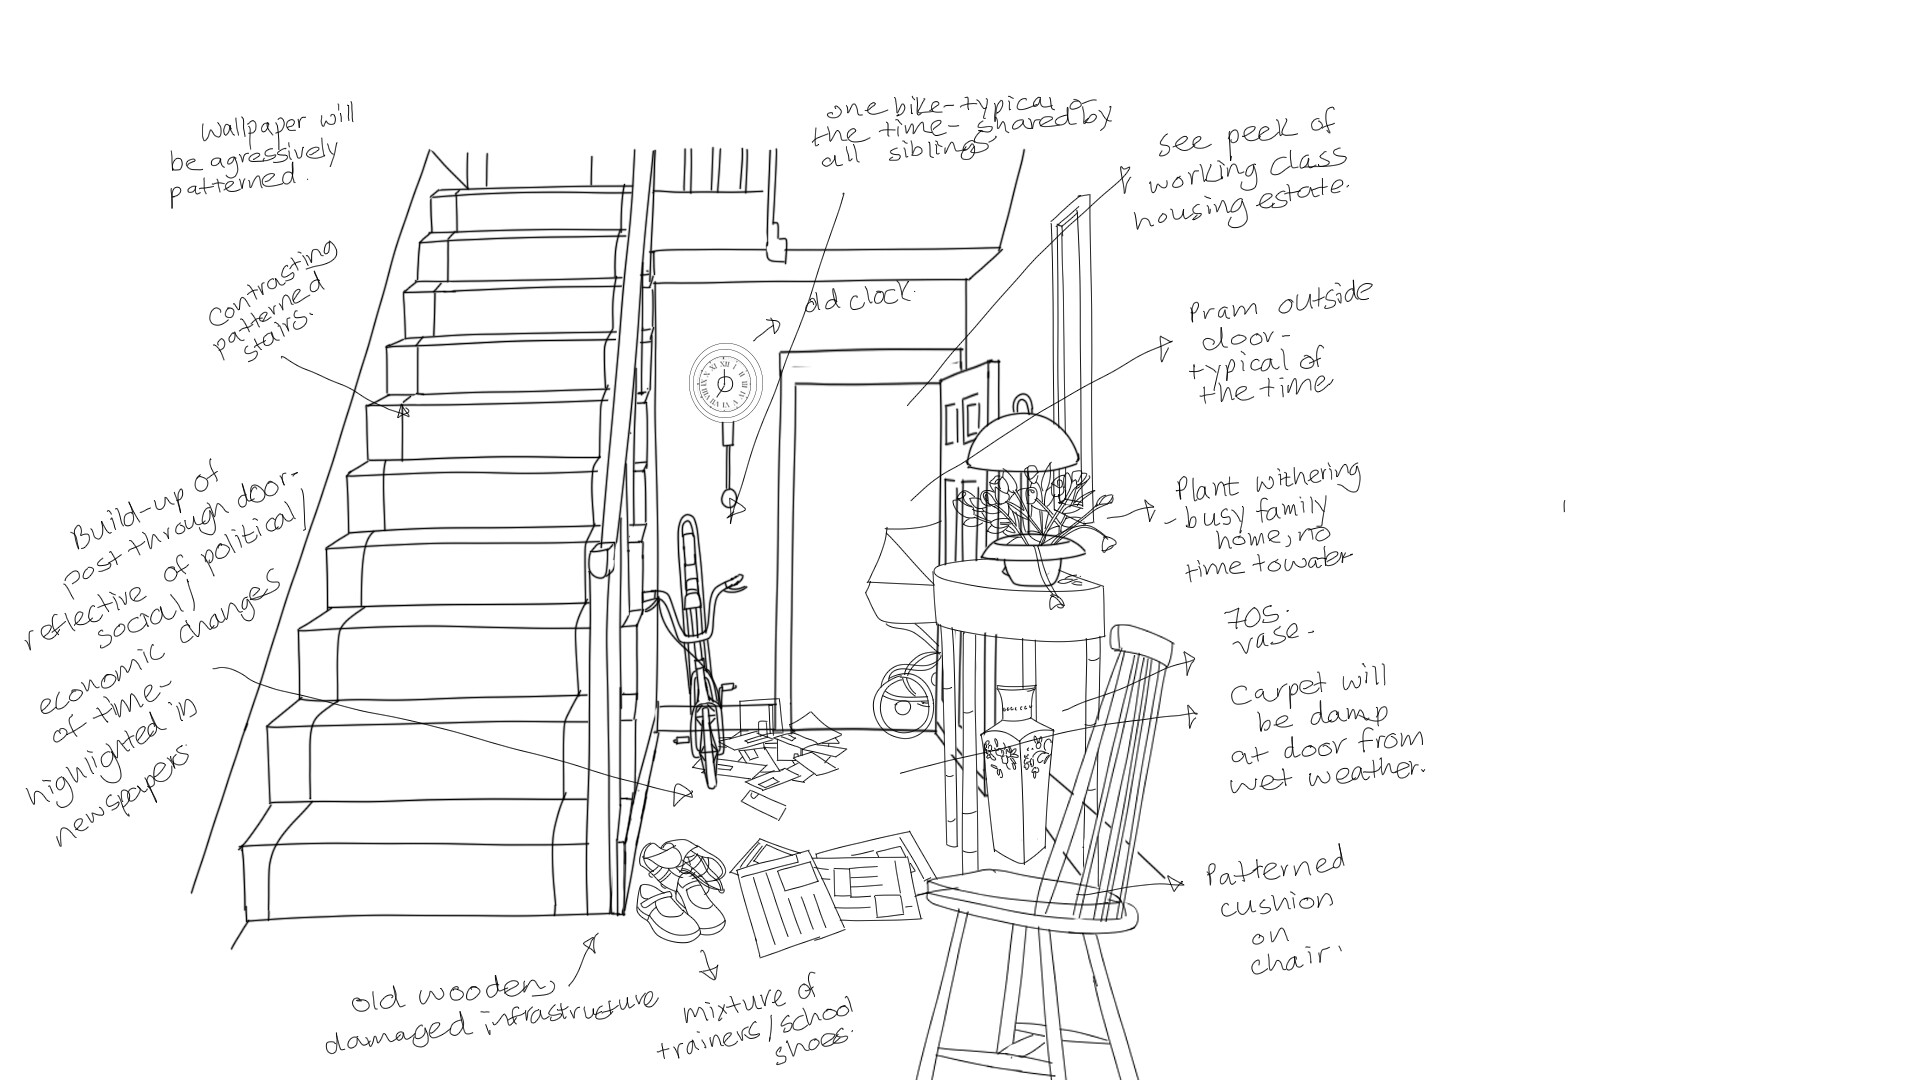 Wallpaper will
be agressively
patterned.
one bike-typical of
the time- shared by
all siblings
see peek of
working class
housing estate.
Contrasting
patterned
stairs.
old clock.
Pram outside
door-
typical of
the time
Build-up of
post through door-
reflective of political/
social/
economic changes
of time-
highlighted in
newspapers
Plant withering
- busy family
home, no
time to water
70s.
vase-
Carpet will
be damp
at door from
wet weather.
Patterned
cushion
on
chair.
old wooden,
damaged infrastructure
mixture of
trainers/school
shoes.